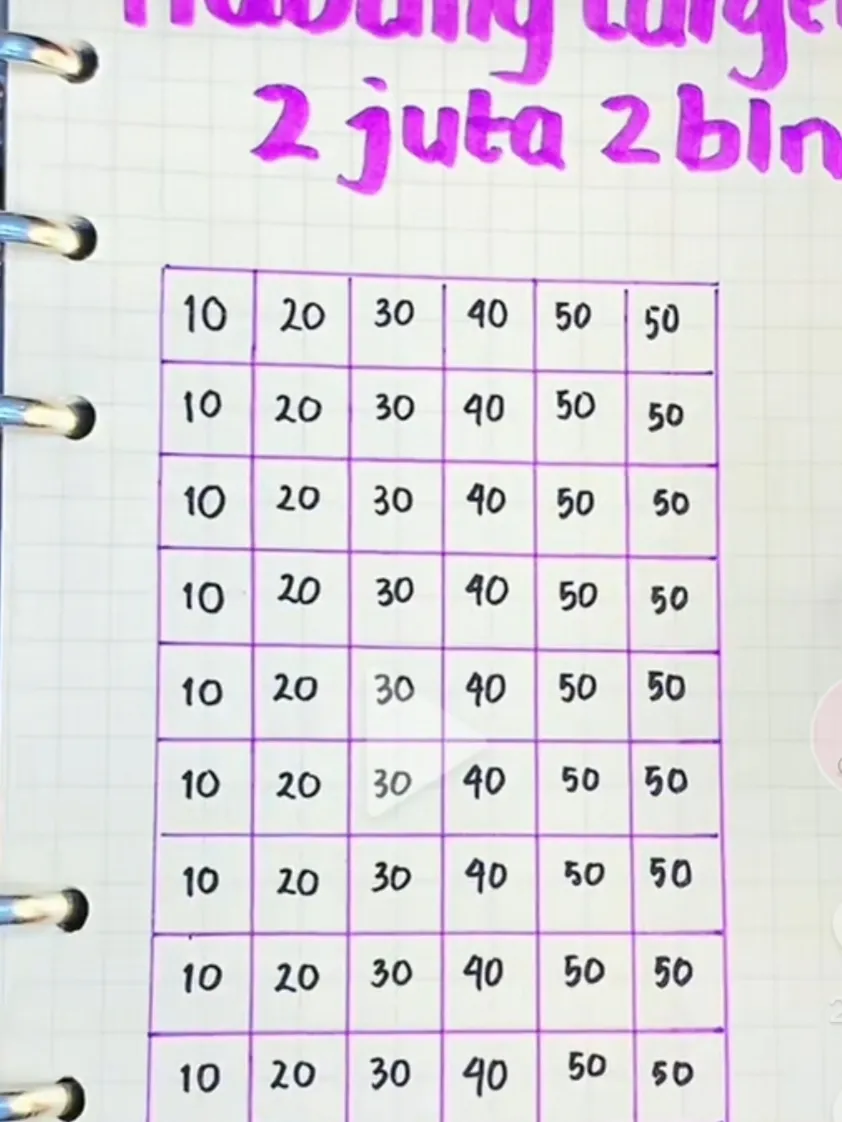 Nabung target
2 juta 2 bln
10 20 30 40 50 50
10 20 30 40 50 50
10 20 30 40 50 50
10 20 30 40 50 50
10 20 30 40 50 50
10 20 30 40 50 50
10 20 30 40 50 50
10 20 30 40 50 50
10 20 30 40 50 50